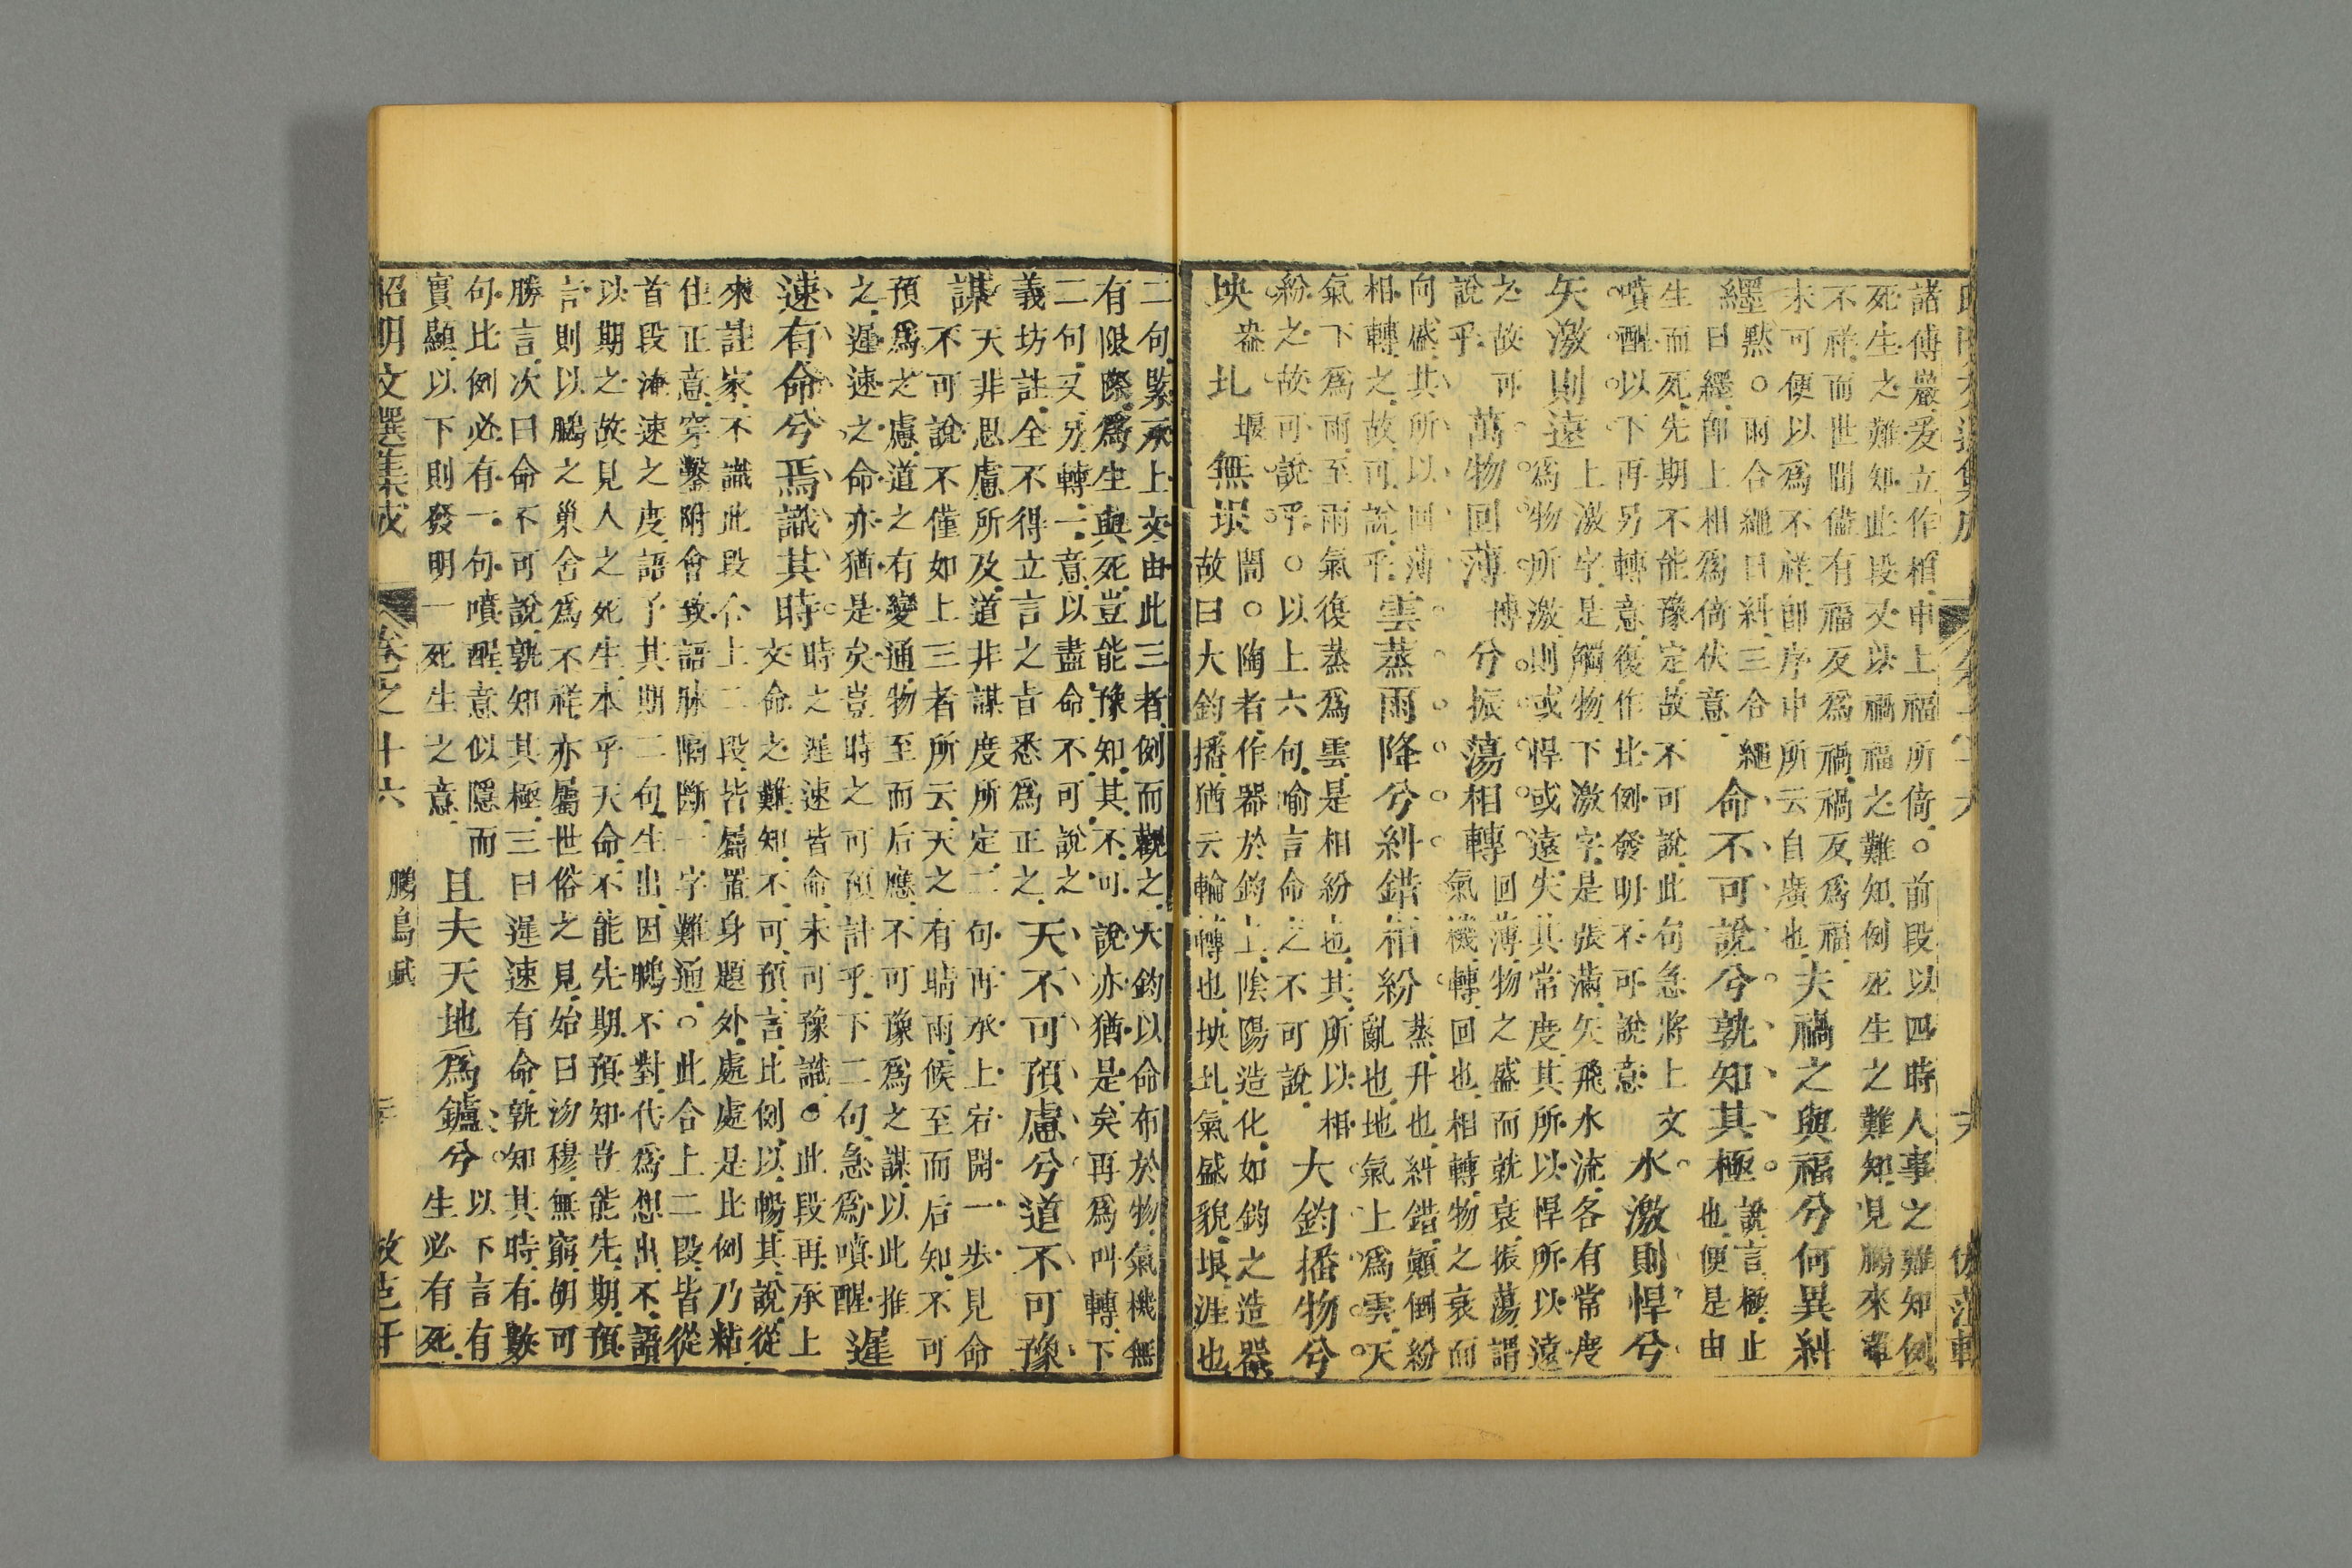 諸傅嚴爰立作相申上福所倚○前段以四時人事之難知例
死生之難知此段又以禍福之難知例死生之難知見鵩來
不祥而世間儘有福反爲禍禍反爲福
未可便以爲不祥卽序中所云自廣也
夫禍之與福兮何異糾
纆
墨默○兩合繩曰糾三合繩
曰纆卽上相爲倚伏意
命不可說兮孰知其極
說言極止
也便是由
生而死先期不能豫定故不可說此句急將上文
噴醒以下再另轉意復作比例發明不可說意
水激則悍兮
矢激則遠
上激字是觸物下激字是張滿矢飛水流各有常度
爲物所激則或悍或遠失其常度其所以悍所以遠
之故可
說乎
萬物回薄
博
兮振蕩相轉
回薄物之盛而就衰振蕩謂
氣機轉回也相轉物之衰而
向盛其所以回薄
相轉之故可說乎
雲蒸雨降兮糾錯相紛
蒸升也糾錯顛倒紛
亂也地氣上爲雲天
氣下爲雨至雨氣復蒸爲雲是相紛也其所以相
紛之故可說乎○以上六句喻言命之不可說
大鈞播物兮
坱盎圠堰無垠
誾○陶者作器於鈞上陰陽造化如鈞之造器
故曰大鈞播猶云輪轉也坱圠氣盛貌垠涯也
二句緊承上文由此三者例而觀之大鈞以命布於物氣機無
有限際爲生與死豈能豫知其不可說亦猶是矣再爲叫轉下
二句又另轉一意以盡命不可說之
義坊註全不得立言之旨悉爲正之
天不可預慮兮道不可豫
謀
天非思慮所及道非謀度所定二句再承上宕開一步見命
不可說不僅如上三者所云天之有晴雨候至而后知不可
預爲之慮道之有變通物至而后應不可豫爲之謀以此推
之遲速之命亦猶是矣豈時之可預計乎下二句急爲噴醒
遲
速有命兮焉識其時
時之遲速皆命未可豫識○此段再承上
文命之難知不可預言比例以暢其說從
來註家不識此段个上二段皆屬置身題外處處是比例乃粘
住正意穿鑿附會致語脉隔斷一字難通○此合上二段皆從
首段淹速之度語予其期二句生出因鵩不對代爲想出不語
以期之故見人之死生本乎天命不能先期預知豈能先期預
言則以鵩之巢舍爲不祥亦屬世俗之見始曰沕穆無窮胡可
勝言次曰命不可說孰知其極三曰遲速有命孰知其時有數
句比例必有一句噴醒意似隱而
實顯以下則發明一死生之意
且夫天地爲鑪兮
以下言有
生必有死
昭明文選集成 卷之十六 鵩鳥賦